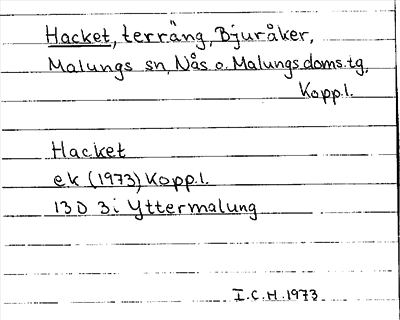 Hacket, terräng, Bjuråker,
Malungs sn, Nås o. Malungs doms.tg,
Kopp.l.
Hacket
ek (1973) Kopp.l.
13D 3i Yttermalung
I.C.H. 1973